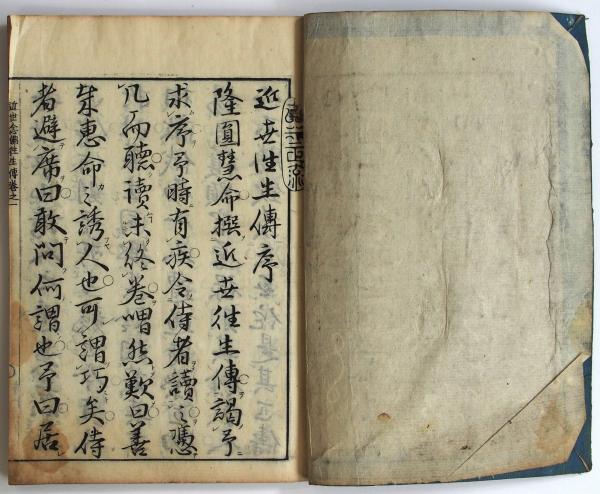 近世往生傳序
隆圓慧命撰近世往生傳謁予
求序予時有疾令侍者讀之憑
几而聽讀未終卷喟然歎曰善
哉惠命之誘人也可謂巧矣侍
者避席曰敢問何謂也予曰居
近世念佛往生傳卷之一